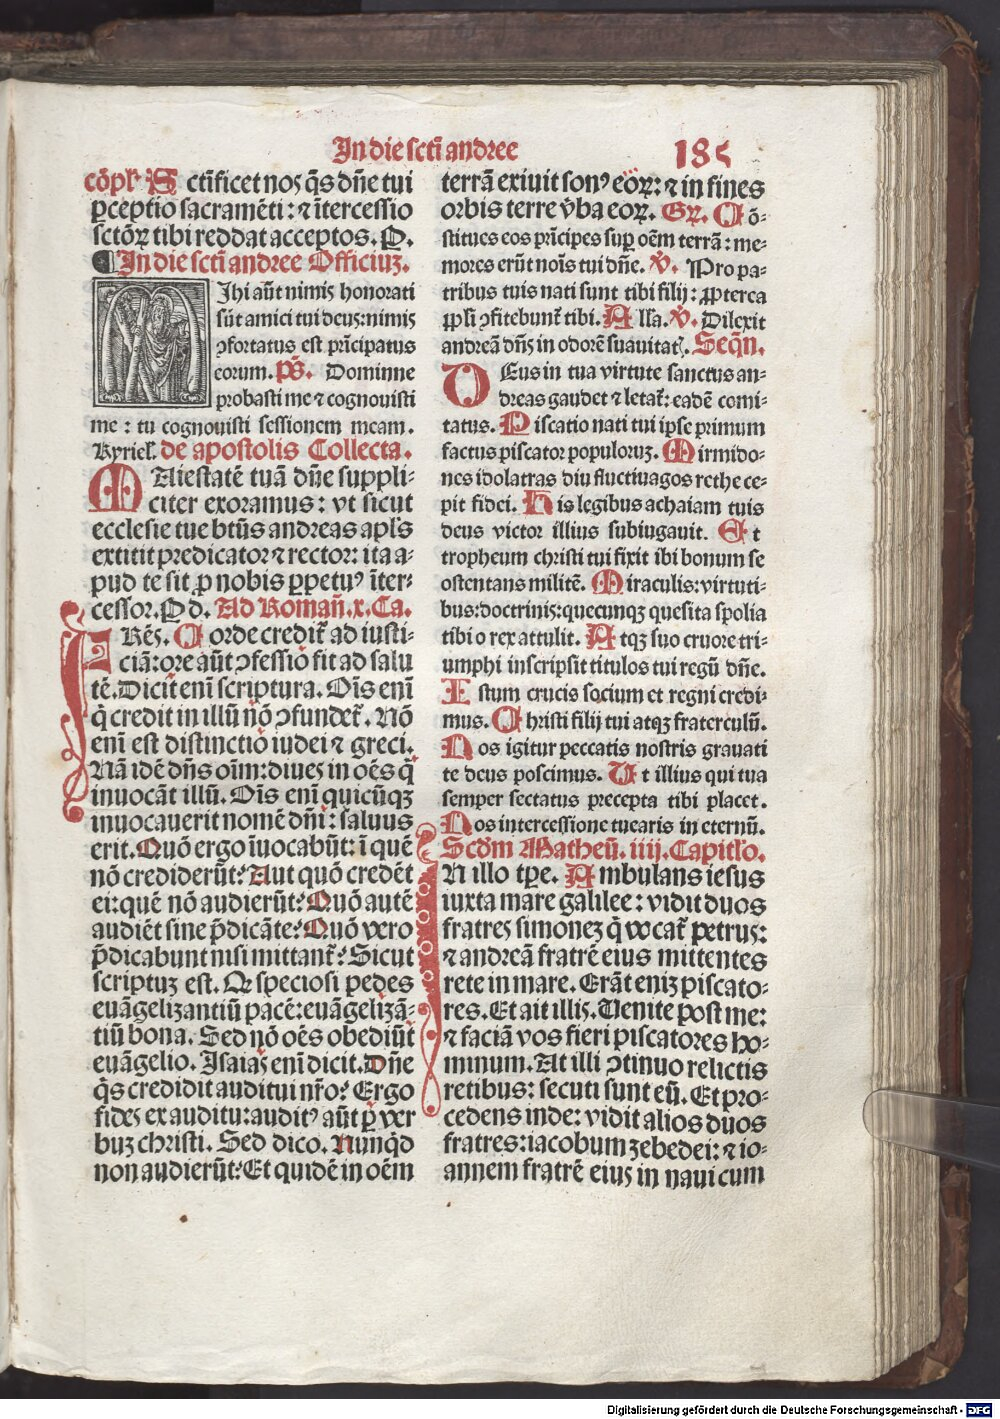 In die sctī andree 185
cōpl' S ctificet nos q̄s dn̄e tui
ꝑceptio sacramēti : ⁊ ītercessio
sctōꝝ tibi reddat acceptos. P.
¶ In die sctī andree Officiuȝ.
M Ihi aūt nimis honorati
sūt amici tui deus: nimis
ↄfortatus est prīcipatus
eorum. ps̄. Dominne
probasti me ⁊ cognouisti
me : tu cognouisti sessionem meam.
Kyriel'. de apostolis Collecta.
M Aiestatē tuā dn̄e suppli-
citer exoramus : vt sicut
ecclesie tue btūs andreas apl's
extitit predicator ⁊ rector: ita a-
pud te sit ꝓ nobis ꝑpetuꝰ īter-
cessor. P d. Ad Romañ. x. Ca.
F Rēs. C orde credit̄ ad iusti-
ciā: ore aūt ↄfessio fit ad salu
tē. Dicit enī scriptura. Oīs enī
q̄ credit in illū nō ↄfundet̄. Nō
enī est distinctio iudei ⁊ greci.
Nā idē dn̄s oīm: diues in oēs q̄
inuocāt illū. Oīs enī quicūqꝫ
inuocauerit nomē dn̄i : saluus
erit. Quō ergo īuocabūt: ī quē
nō crediderūt? Aut quō credēt
ei: quē nō audierūt? Quō autē
audiēt sine p̄dicāte? Quō vero
p̄dicabunt nisi mittant̄? Sicut
scriptuȝ est. Qȝ speciosi pedes
euāgelizantiū pacē: euāgelizā-
tiū bona. Sed nō oēs obediūt
euāgelio. Isaias enī dicit. Dn̄e
q̄s credidit auditui nr̄o? Ergo
fides ex auditu: auditꝰ aūt ꝑ ver
buȝ christi. Sed dico. Nunq̄d
non audierūt? Et quidē in oēm
terrā exiuit sonꝰ eōꝝ: ⁊ in fines
orbis terre v̄ba eoꝝ. Gꝝ. C ō-
stitues eos prīcipes suꝑ oēm terrā : me-
mores erūt noīs tui dn̄e. ꝟ. Pro pa-
tribus tuis nati sunt tibi filij : ꝓpterea
ppl'i ↄfitebunt̄ tibi. A ll'a. ꝟ. Dilexit
andreā dn̄s in odorē suauitat'. Seqn̄.
D Eus in tua virtute sanctus an-
dreas gaudet ⁊ letat̄: eadē comi-
tatus. P iscatio nati tui ipse primum
factus piscator populoruȝ. M irmido-
nes idolatras diu fluctiuagos rethe ce-
pit fidei. H is legibus achaiam tuis
deus victor illius subiugauit. E t
tropheum christi tui fixit ibi bonum se
ostentans militē. M iraculis: virtuti-
bus: doctrinis: quecunqꝫ quesita spolia
tibi o rex attulit. A tqꝫ suo cruore tri-
umphi inscripsit titulos tui regū dn̄e.
I stum crucis socium et regni credi-
mus. C hristi filij tui atqꝫ fraterculū.
N os igitur peccatis nostris grauati
te deus poscimus. U t illius qui tua
semper sectatus precepta tibi placet.
N os intercessione tuearis in eternū.
Scdm Matheū. iiij. Capitl'o.
I N illo tp̄e. A mbulans iesus
iuxta mare galilee : vidit duos
fratres simoneȝ q̄ vocat̄ petrus:
⁊ andreā fratrē eius mittentes
rete in mare. Erāt eniȝ piscato-
res. Et ait illis. Uenite post me:
⁊ faciā vos fieri piscatores ho-
minum. At illi ↄtinuo relictis
retibus : secuti sunt eū. Et pro-
cedens inde: vidit alios duos
fratres: iacobum zebedei: ⁊ io-
annem fratrē eius in naui cum
Digitalisierung gefördert durch die Deutsche Forschungsgemeinschaft - DFG